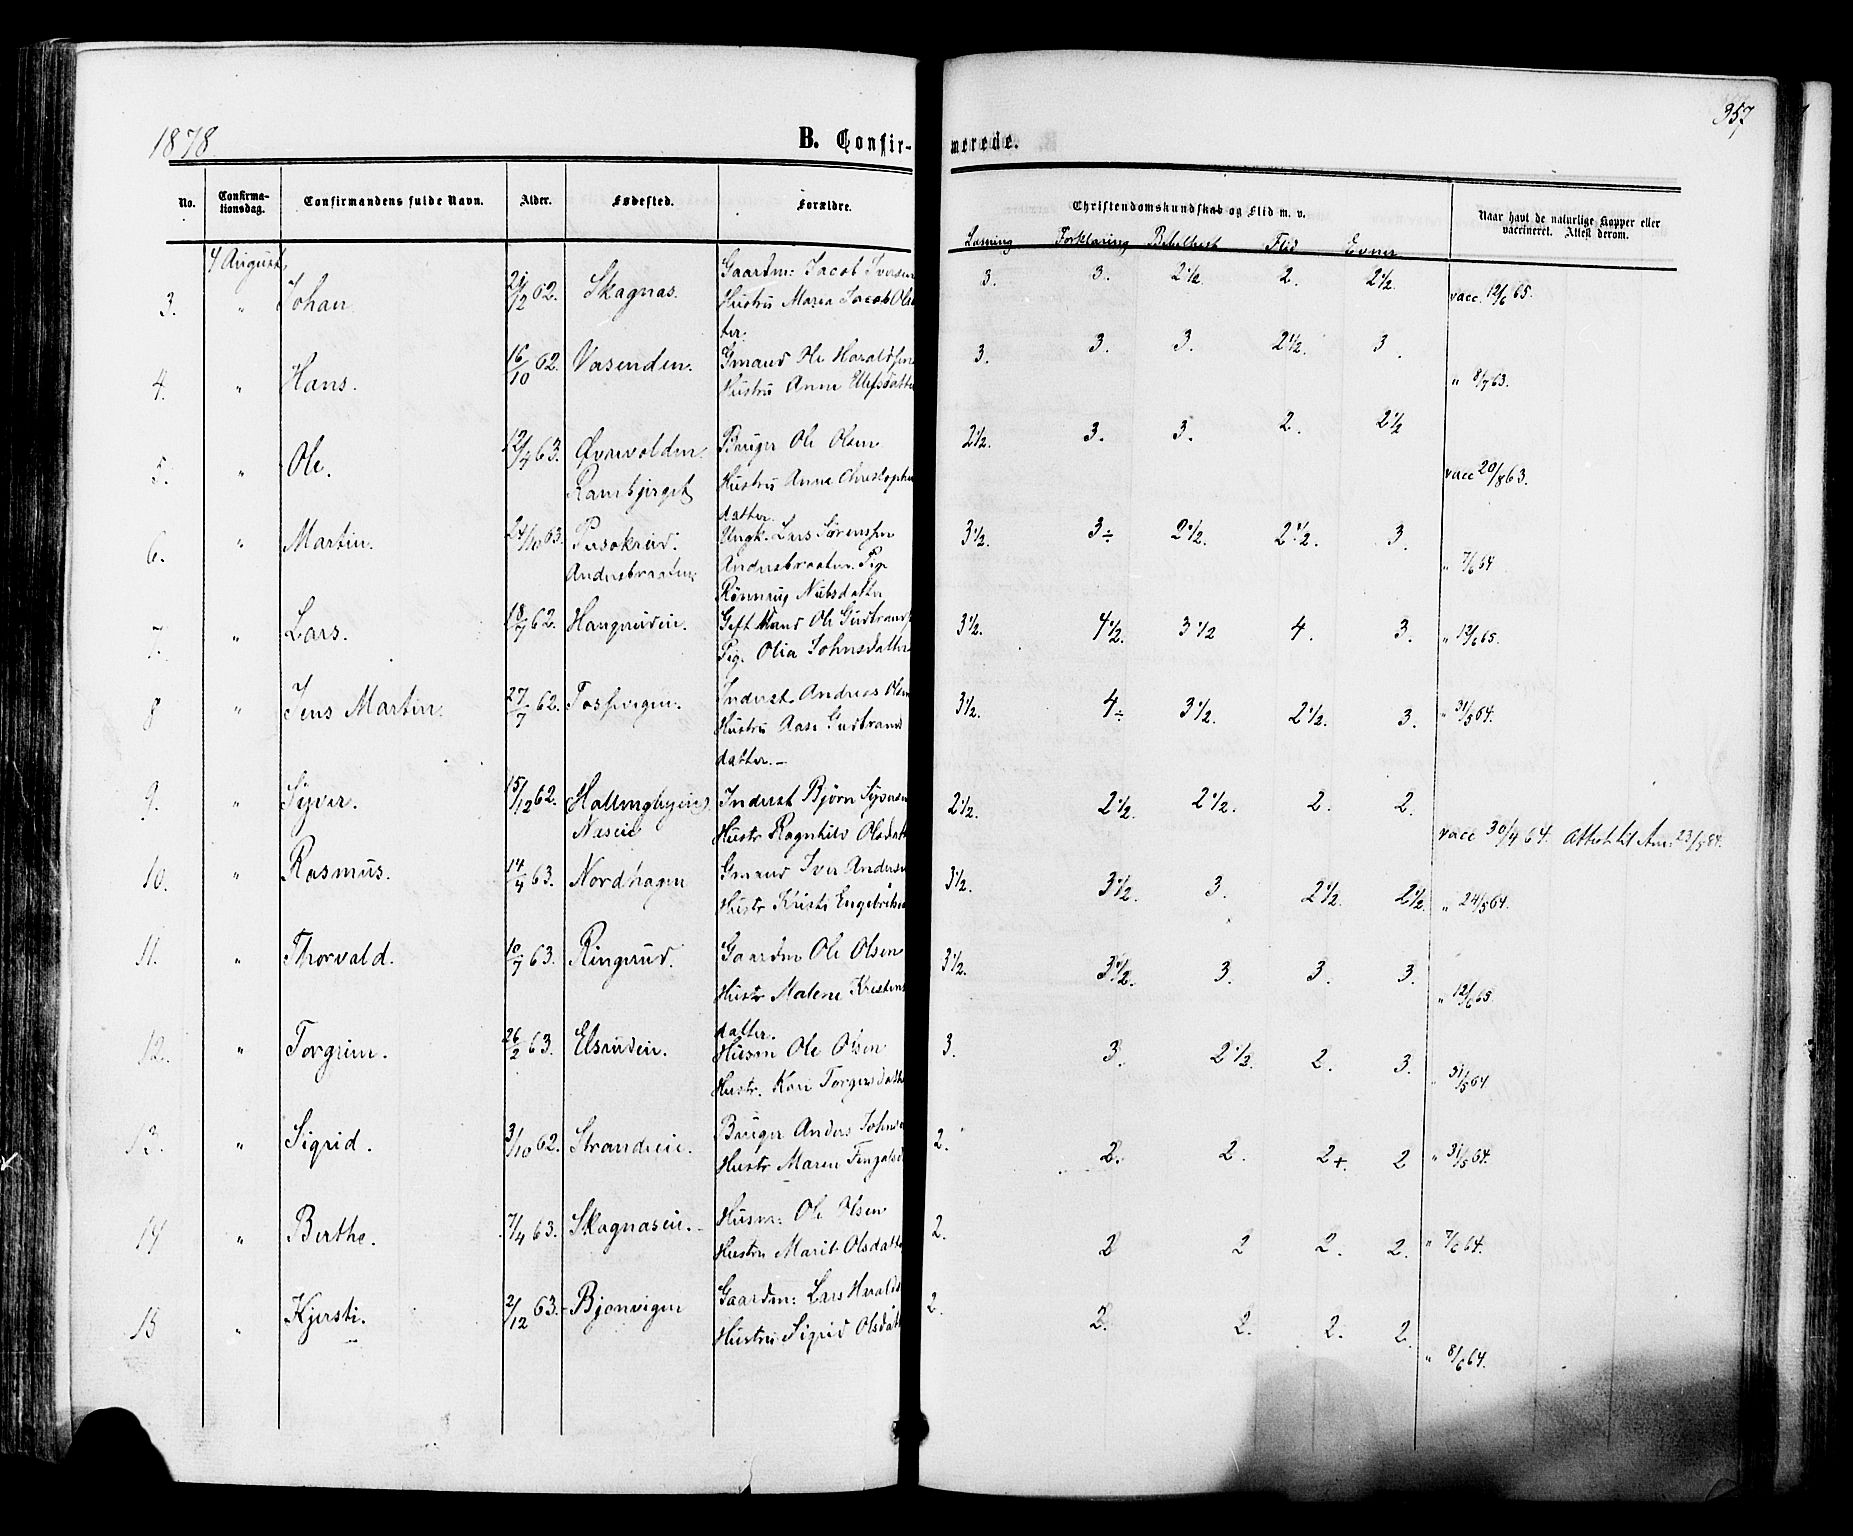 1878.
357
B. Confir-
merede.
No.
Confirma-
tionsdag.
Confirmandens fulde Navn.
Alder.
Fødested.
Forældre.
Christendomskundskab og Flid m. v.
Naar havt de naturlige Kopper eller
vaccineret. Attest derom.
Læsning Forklaring Bibelhist Flid Evner
4 August
3. " Johan 21/12 62. Skagnæs. Gaardm: Jacob Iversen
Hustru Maria Jacob Ols
ter. 3. 3. 2 1/2 2. 2 1/2. vacc. 12/6 65.
4. " Hans. 16/10 62. Vasenden. Gmand Ole Haraldsen
Hustru Anne Ellefsdatter 3. 3. 3. 2 1/2. 3. " 8/7 63.
5. " Ole. 12/4 63. Øvrevolden.
Rambjerget Bruger Ole Olsen
Hustru Anne Christophers
datter. 2 1/2. 3. 3. 2. 2 1/2 vacc 20/8 63.
6. " Martin. 24/10 63. Persokrud.
Andersbraaten Ungk. Lars Sørenssen
Andersbraaten. Pig.
Rönnaug Nubsdatter 3 1/2. 3÷ 2 1/2. 2 1/2. 3. " 7/6 64
7. " Lars. 18/7 62. Haugerudeie. Gift Mand Ole Gudbrands
Pig. Olia Johnsdatter 3 1/2. 4 1/2. 3 1/2 4. 3. " 12/6 65.
8 " Jens Martin. 27/7 62. Fossvigen. Inderst. Andreas Olsen
Hustru Aase Gudbrands
datter.- 3 1/2. 4÷ 3 1/2. 2 1/2. 3. " 31/5 64.
9. " Syver. 15/12 62. Hallingbyeie
Næseie Inderst Bjørn Syversen
Hustr Ragnhild Olsdatt 2 1/2. 2 1/2. 2 1/2. 2. 2. vacc 30/4 64. Attest til Am. 23/5 84.
10. " Rasmus. 14/4 63. Nordhagen Gmand Iver Andersen
Hustr Kristi Engebrits 3 1/2. 3 1/2. 3. 2 1/2. 2 1/2. " 24/5 64.
11. " Thorvald. 10/7 63. Ringerud. Gaardm Ole Olsen
Hustr Malene Kristens
datter. 3 1/2. 3 1/2. 3. 3. 3. " 12/6 65.
12. " Torgrim. 26/2 63. Elsrudeie. Husm Ole Olsen
Hustr. Kari Torgersdatte 3. 3. 2 1/2. 2. 3. " 31/5 64
13. " Sigrid. 3/10 62. Strandeie. Bruger Anders Johns
Hustr Maren Fingalsd 2. 2. 2. 2+. 2 " 31/5 64.
14 " Berthe. 7/4 63. Skagnæseie. Husm: Ole Olsen
Hustru Marit Olsdatte 2. 2 2 2. 2. " 7/6 64.
15 " Kjersti. 2/12 63. Bjonvigen Gaardm: Lars Hvalds
Hustru Sigrid Olsdatt 2. 2. 2. 2. 2. " 8/6 64.